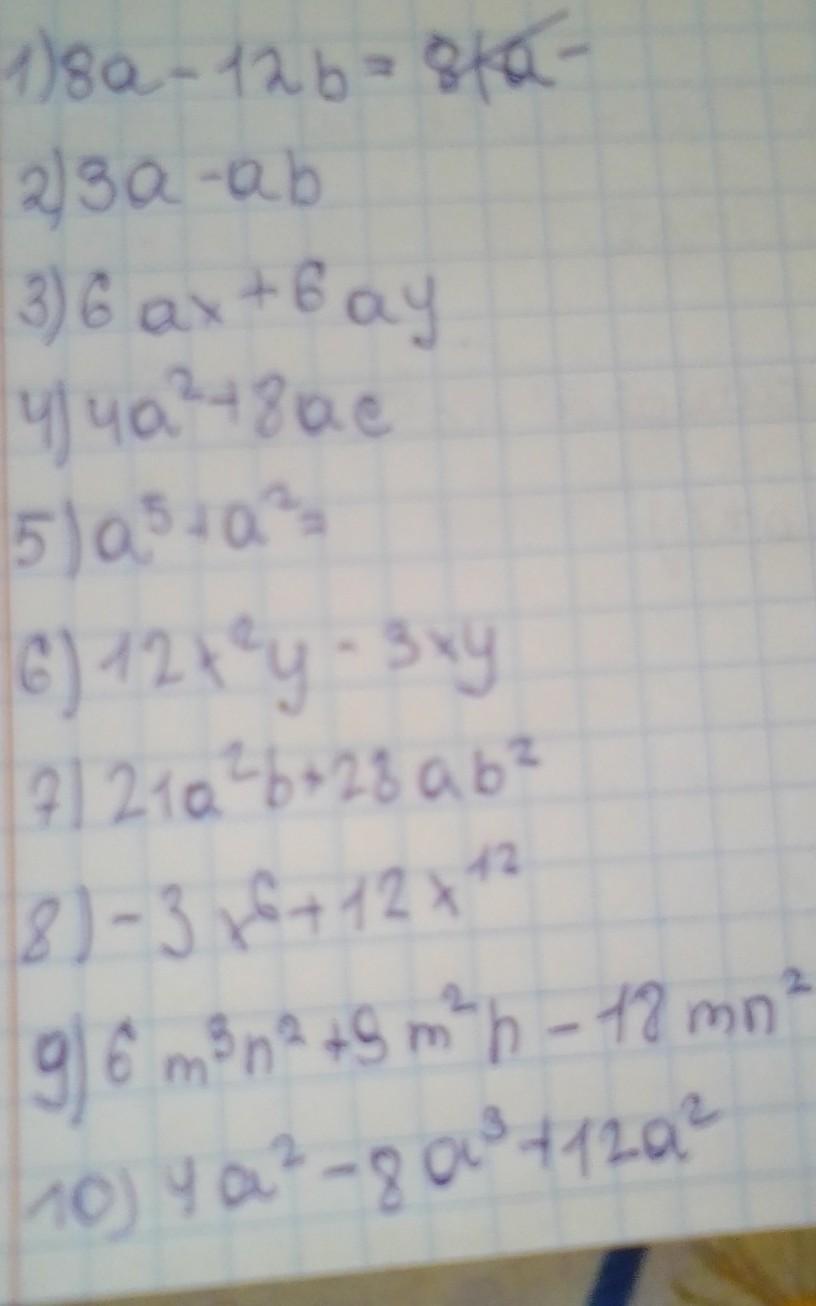 1) 8a - 12b = 8(a -
2) 3a - ab
3) 6ax + 6ay
4) 4a² + 8ac
5) a⁵ + a² =
6) 12x²y - 3xy
7) 21a²b + 28ab²
8) -3x⁶ + 12x¹²
9) 6m³n² + 9m²n - 18mn²
10) 4a² - 8a³ + 12a²